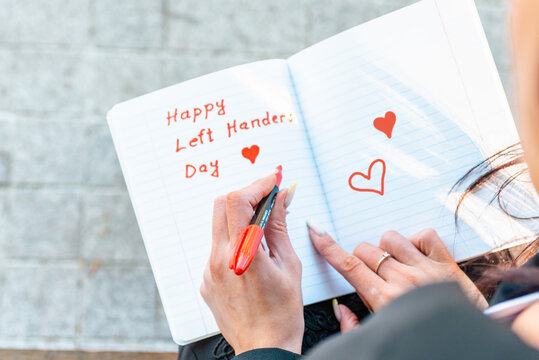 Happy
Left Handers
Day